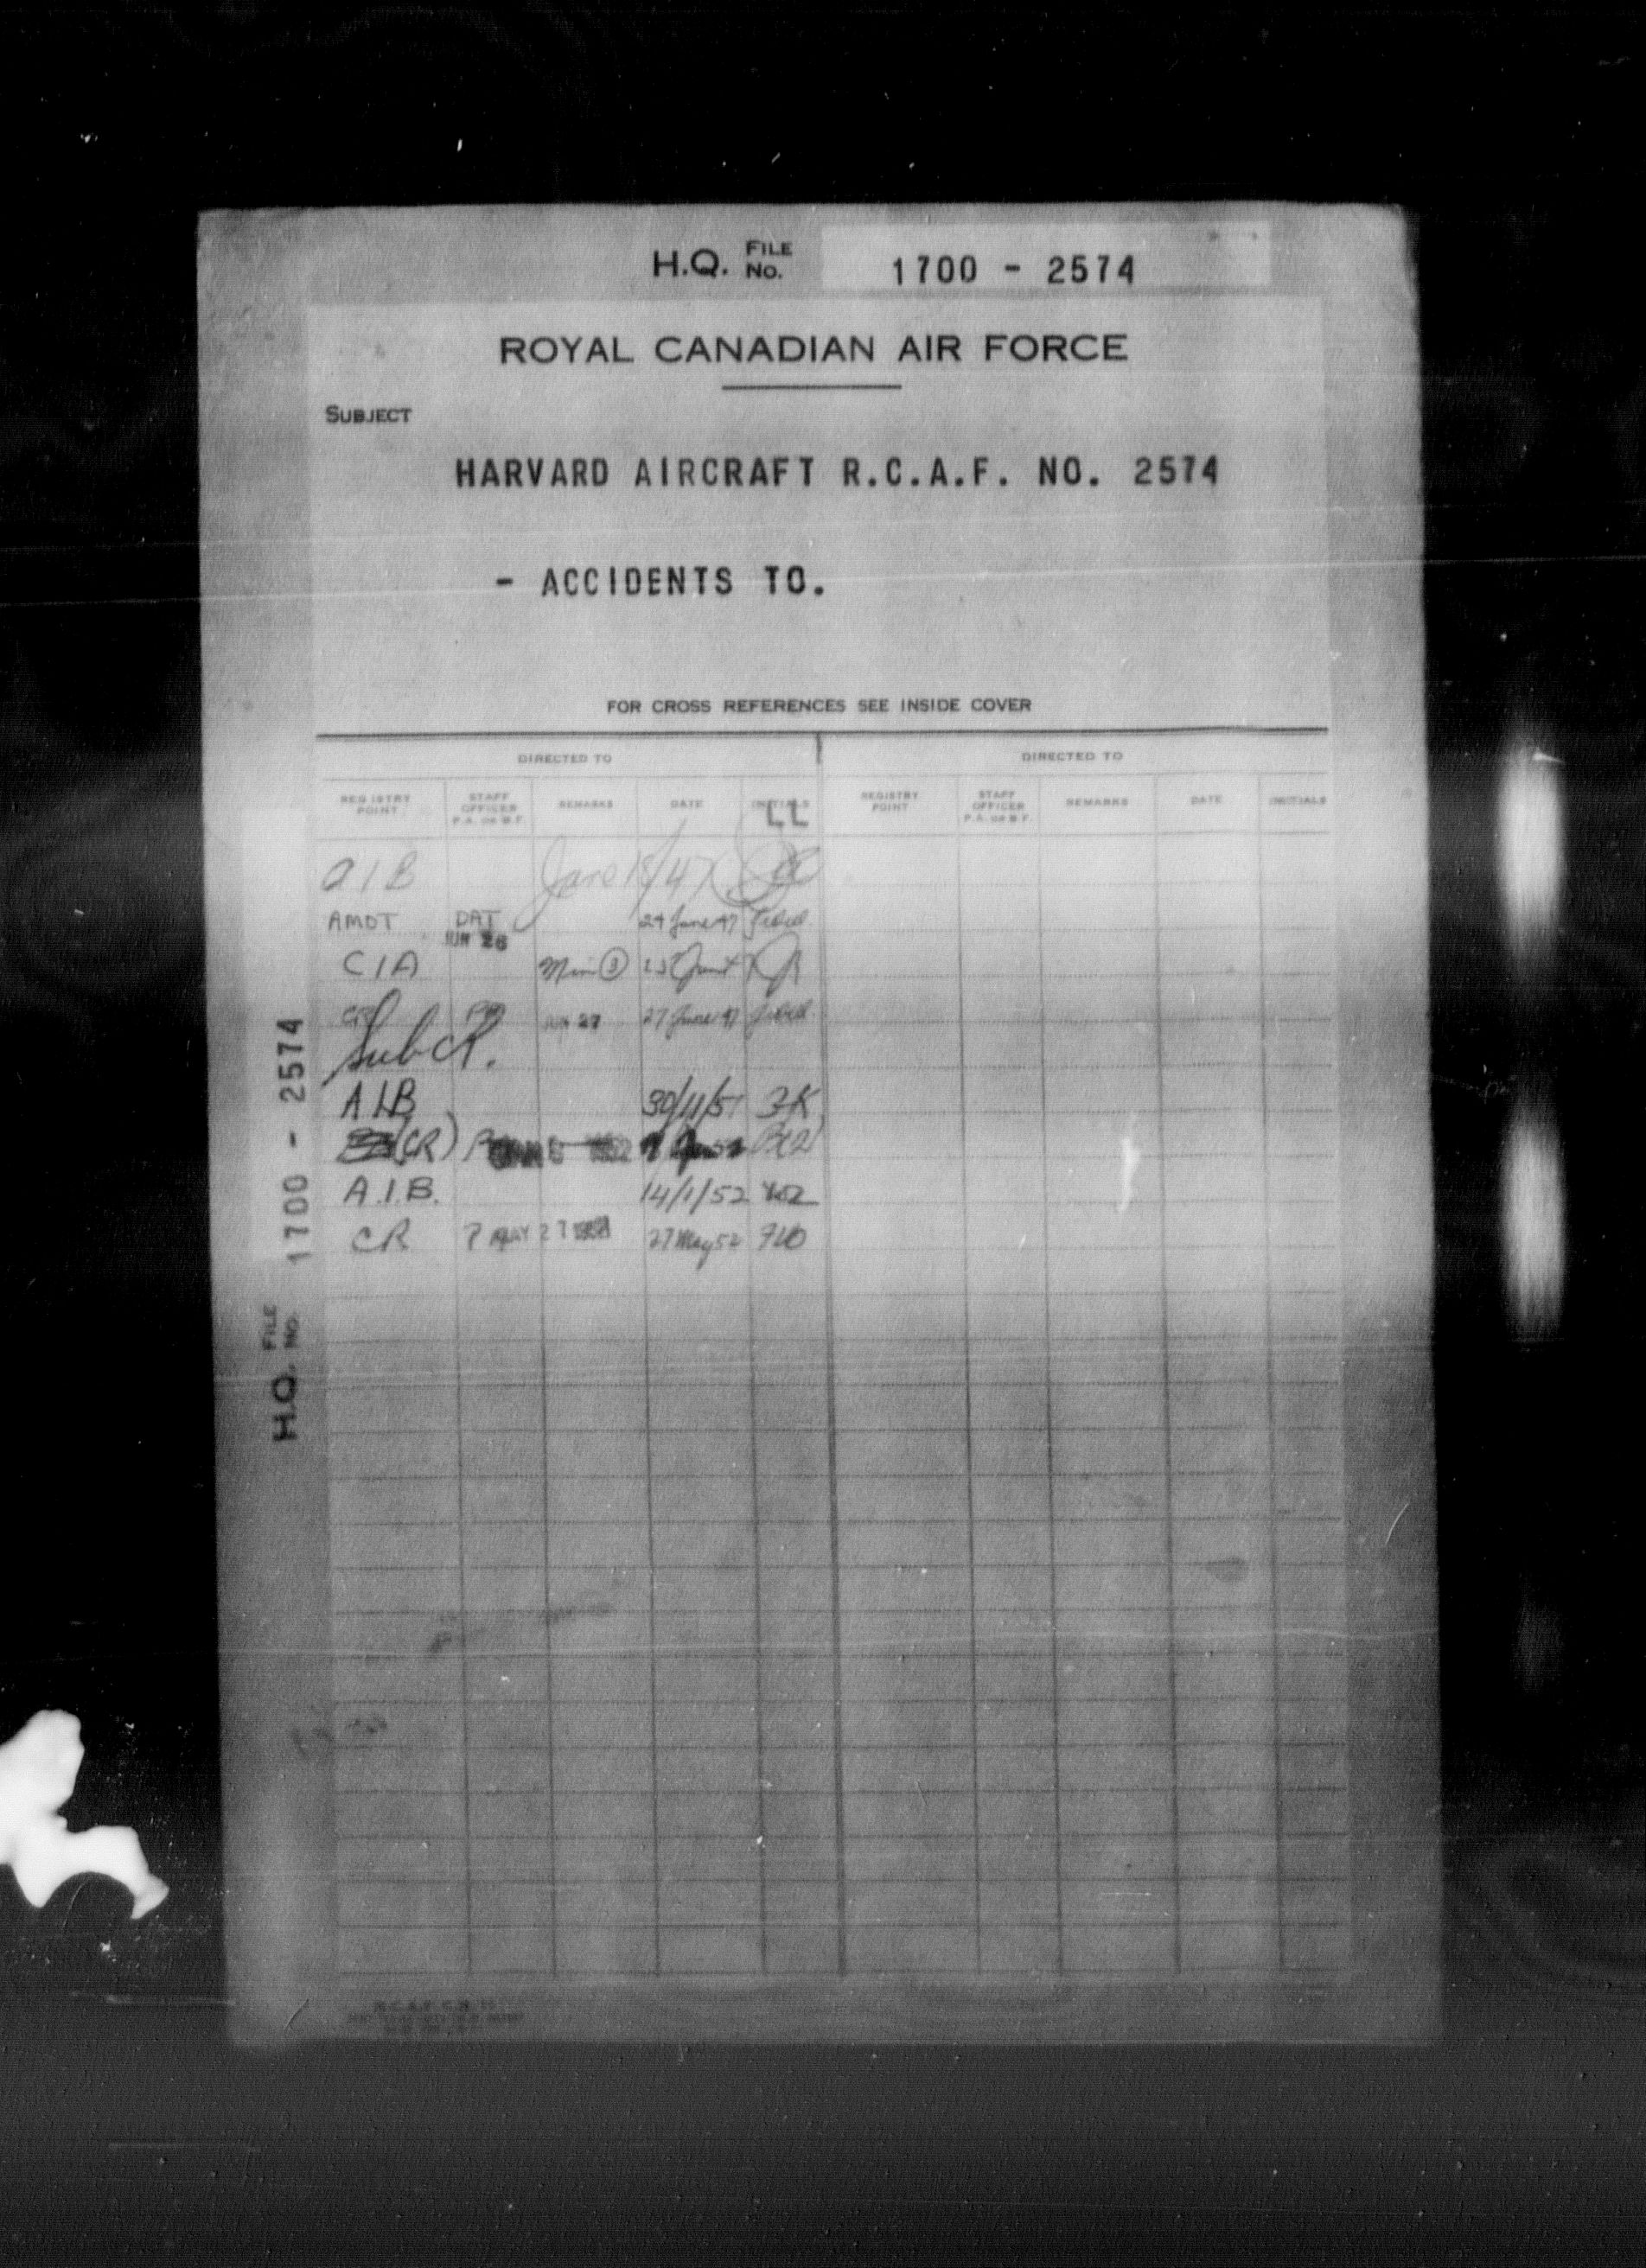 H.Q. FILE No. 1700 - 2574
ROYAL CANADIAN AIR FORCE
SUBJECT
HARVARD AIRCRAFT R.C.A.F. NO. 2574
- ACCIDENTS TO.
FOR CROSS REFERENCES SEE INSIDE COVER
DIRECTED TO DIRECTED TO
REGISTRY POINT STAFF OFFICER P.A. OR B.F. REMARKS DATE INITIALS REGISTRY POINT STAFF OFFICER P.A. OR B.F. REMARKS DATE INITIALS
LL
AIB June 18/47
AMOT DAT 24 June 47
JUN 26
CIA Min 3
JUN 27 27 June 47
AIB 30/11/51
(CR)
A.I.B. 14/1/52
CR MAY 27 27 May 52
H.Q. FILE NO. 1700 - 2574